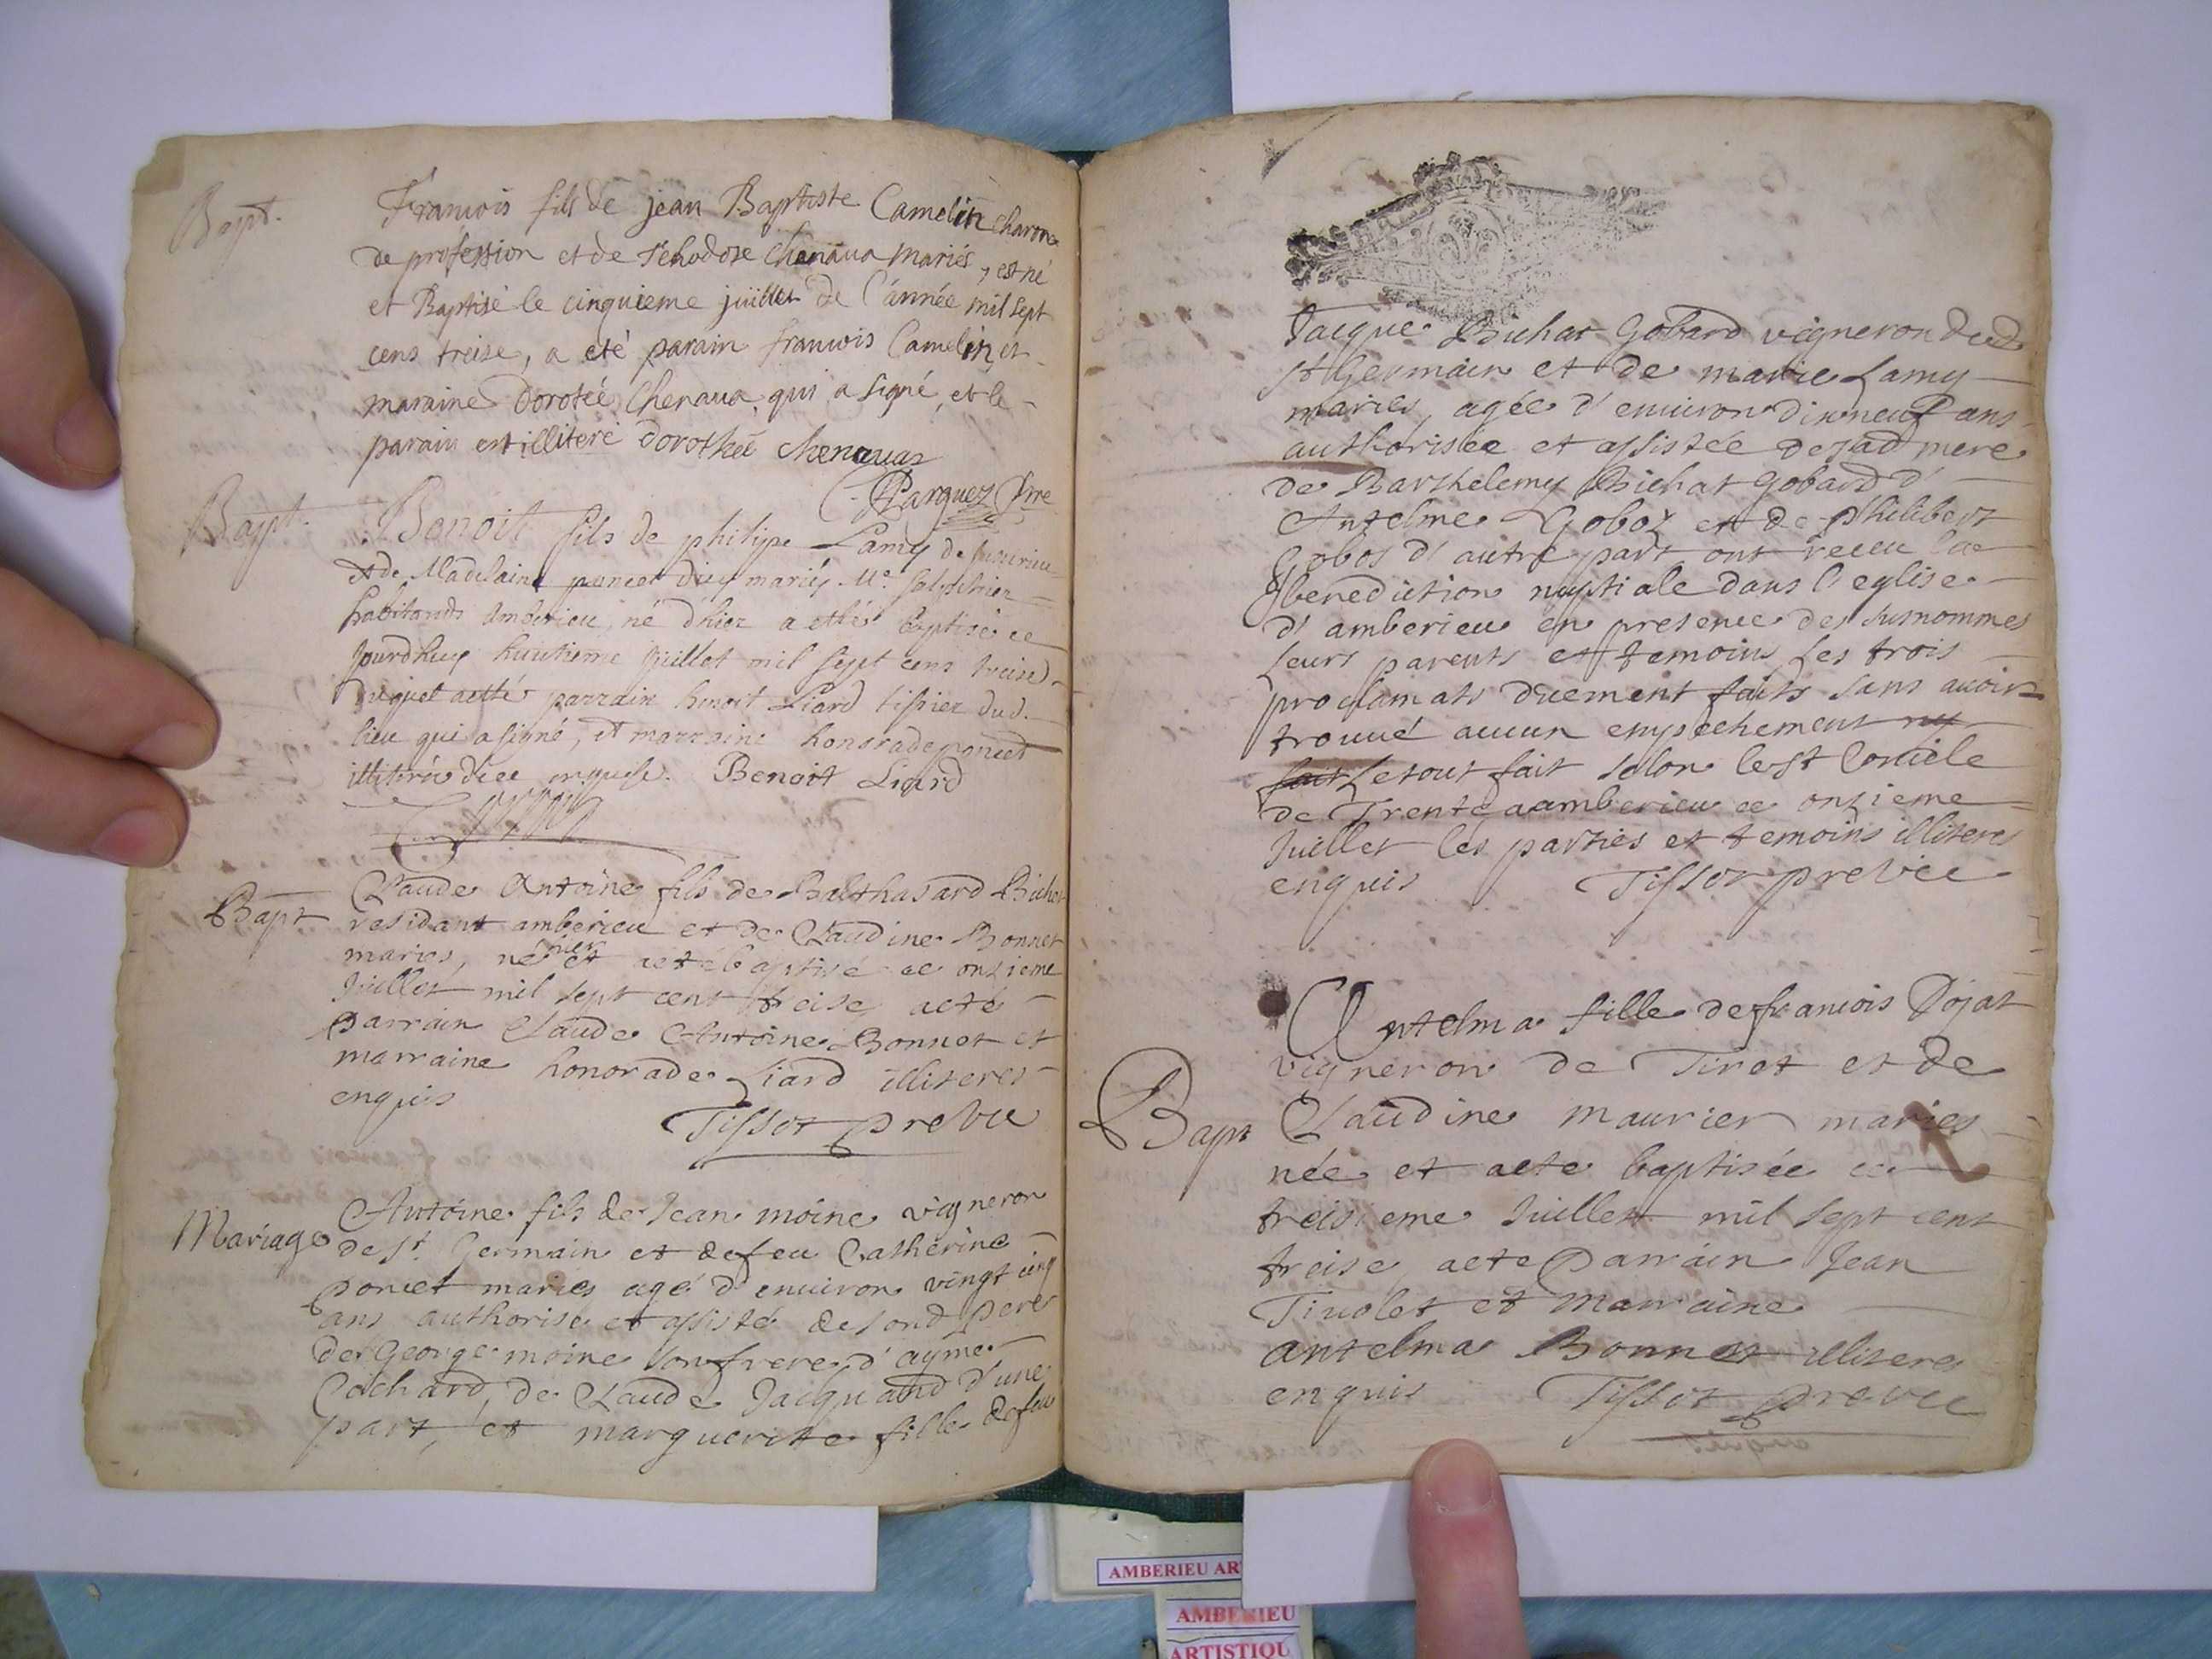 Bapt.
François fils de jean Baptiste Camelin charon
de profession et de Téhodore Chenaua mariés, est né
et Baptisé le cinquieme juillet de l'année mil sept
cens treise, a eté parain francois Camelin, et
maraine Dorotéé Chenaua qui a signé, et le
parain est illiteré Dorothéé chenauas
Parguez Ptre
Bapt.
Benoit fils de philipe Lamy de
et de Madelaine poncet mariés Me
habitands Amberieu, né d'hier a etté baptisé ce
jourdhuy huitieme juillet mil sept cens treise
duquel a etté parrain benoit Liard tissier dud.
lieu qui a signé, et marraine honorade poncet
illiterée enquise. Benoit Liard
Bapt
Claude Antoine fils de Balthasard Bichat
residant amberieu et de Claudine Bonnet
maries, né hier et aeté baptisé ce onzieme
Juillet mil sept cent treise, aeté
parrain Claude Antoine Bonnet et
marraine honorade Liard illiteres
enquis Tissot pre vic
Mariage
Antoine fils de Jean moine vigneron
de st. Germain et defeu Catherine
poncet maries agé d'enuiron vingt cinq
ans authorisé et assisté de sond pere
de George moine son frere d'ayme
Cochard, de Claude Jacquand d'une
part, et marguerite fille defeu
Jacque Bichat Gobard vigneron dud
st Germain et de marie Lamy
maries, agée d'enuiron dixneuf ans
authorisée et assistée de sad mere
de Barthelemy Bichat gobard d'
Antelme Goboz et de philibert
Gobos d'autre part ont receu la
benediction nuptiale dans l'eglise
d'amberieu en presence des susnommes
leurs parents et temoins les trois
proclamats duement faits sans auoir
trouué aucun empechement ny
fait le tout fait selon le st Concile
de Trente aamberieu ce onzieme
Juillet les parties et temoins illiteres
enquis Tissot pre vic
Antelma fille de francois Dojat
vigneron de Tiret et de
Bapt Claudine maurier maries
née et aete baptisée ce
treisieme Juillet mil sept cent
treise, aete parrain Jean
Tiuolet et marraine
antelma Bonnet illiteres
enquis Tissot pre vic
AMBERIEU AR
AMBERIEU
ARTISTIQU